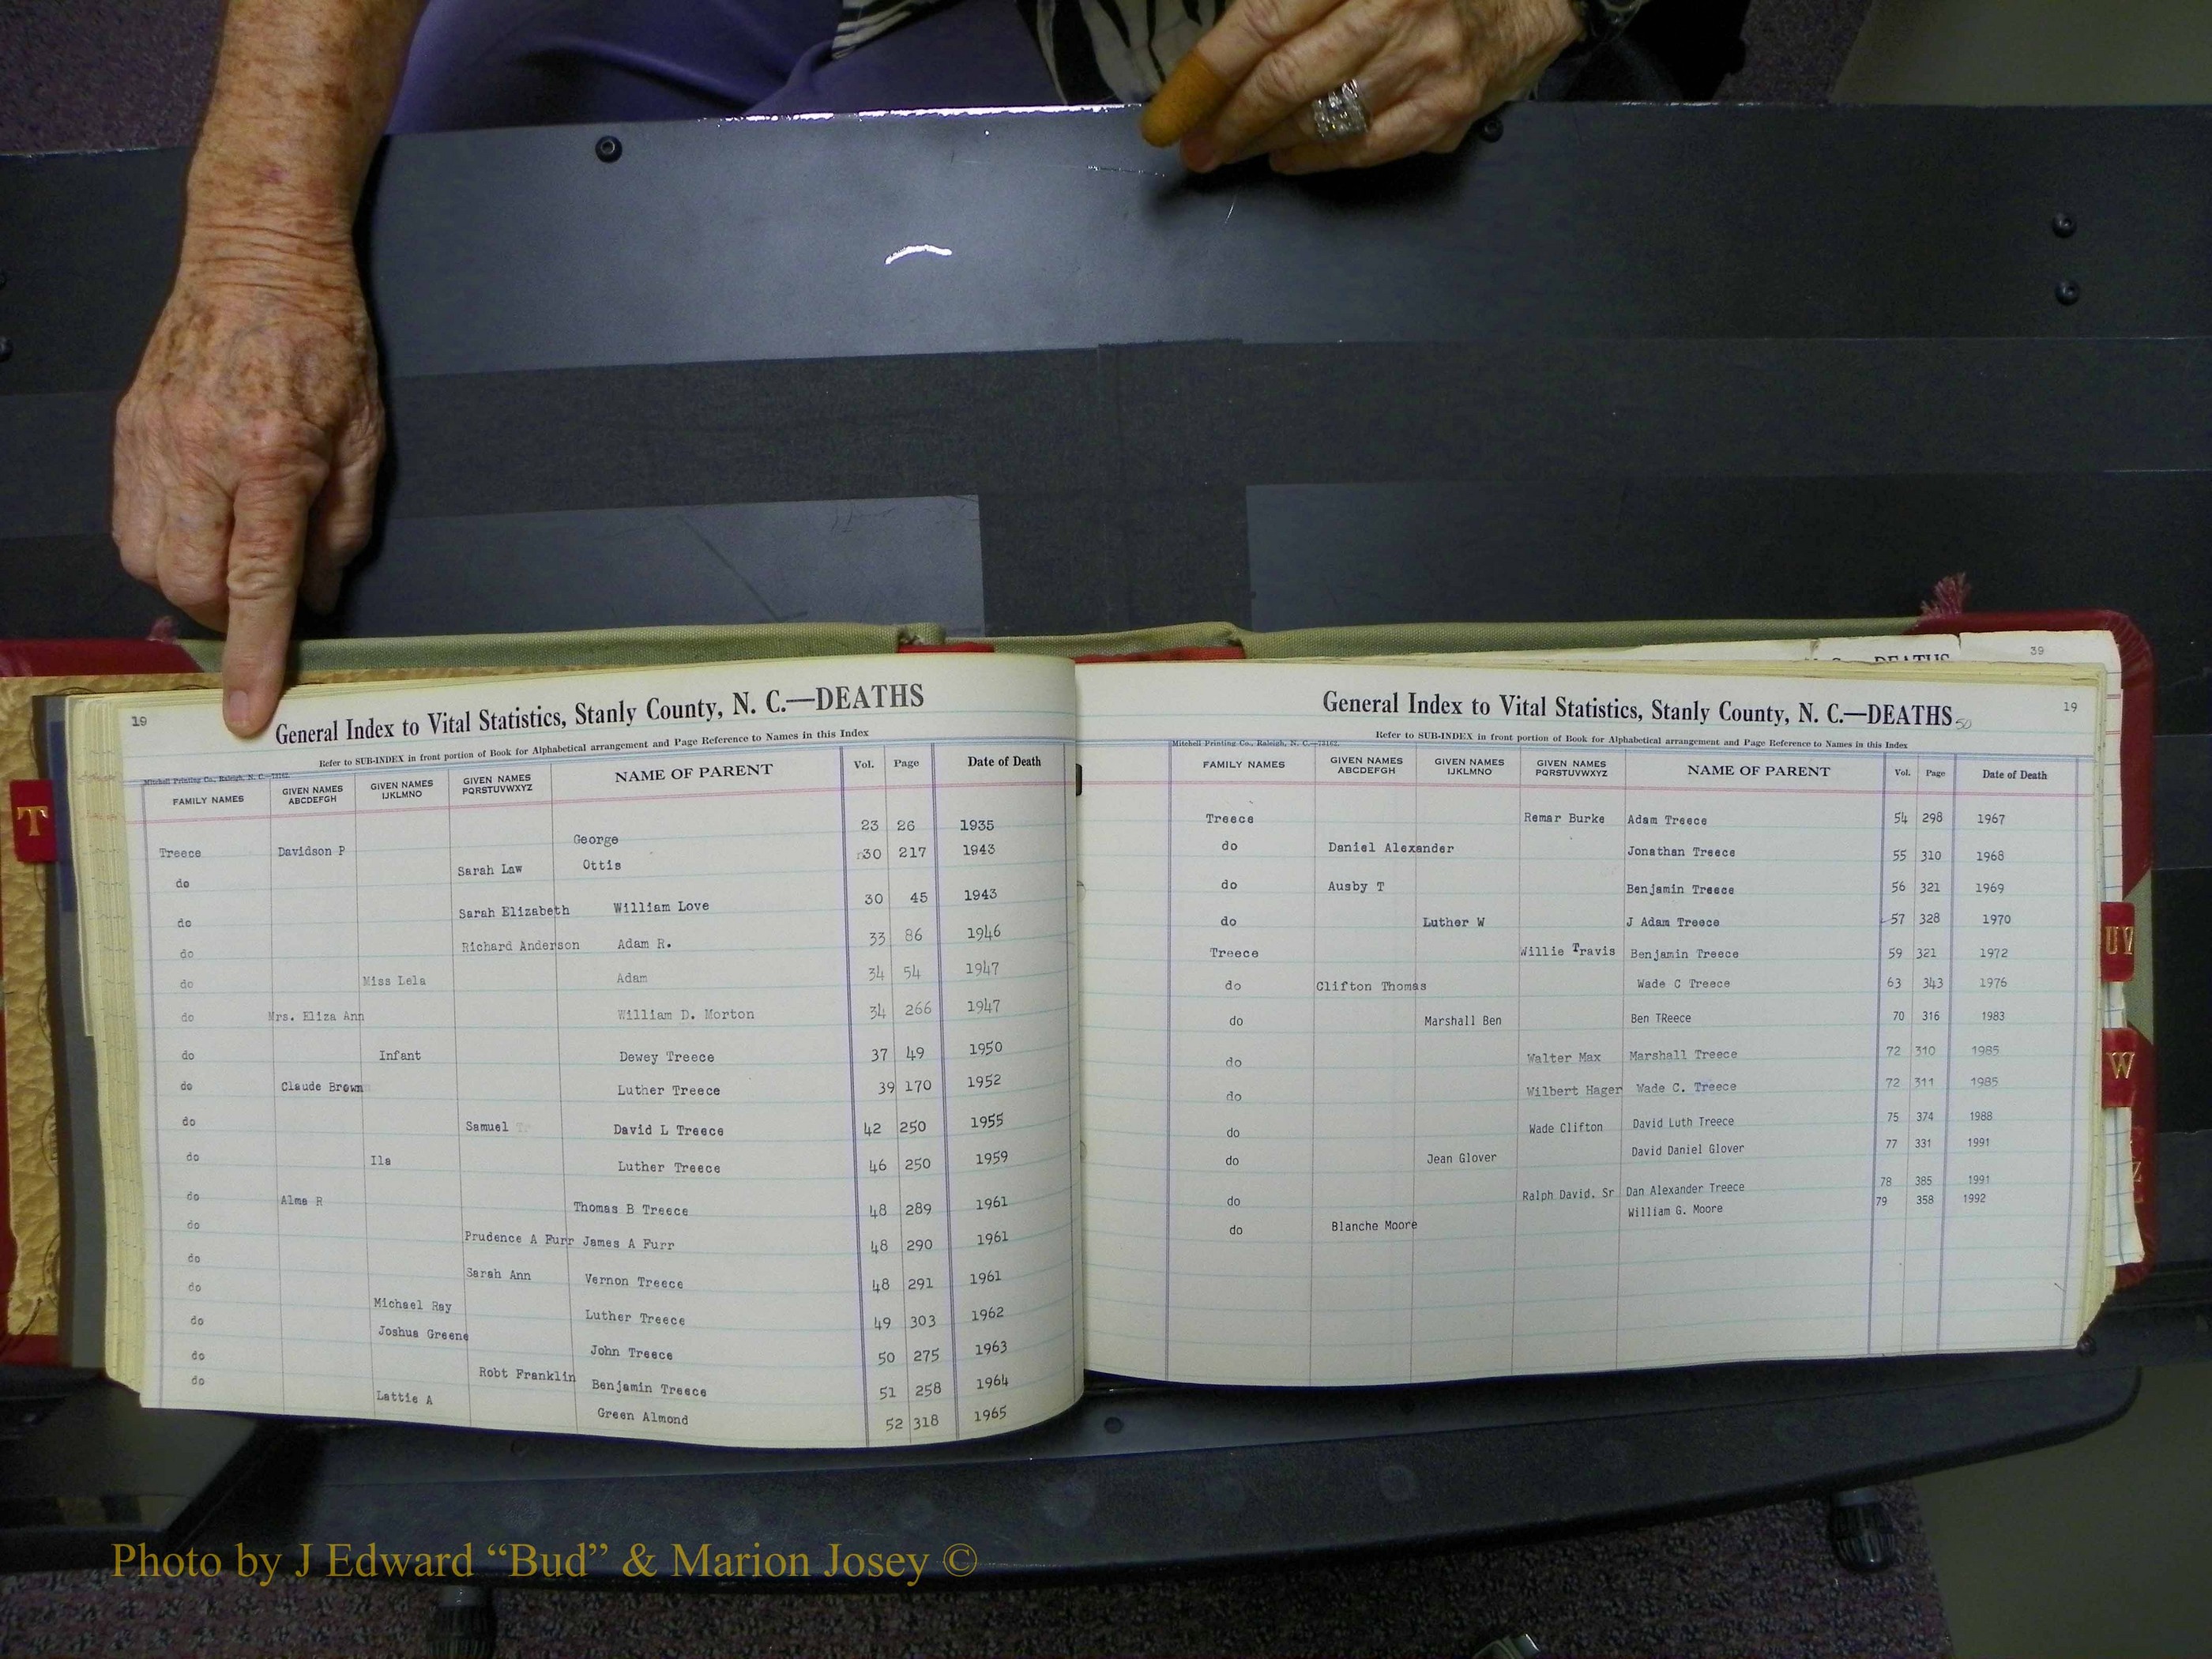 19
General Index to Vital Statistics, Stanly County, N. C.—DEATHS
Refer to SUB-INDEX in front portion of Book for Alphabetical arrangement and Page Reference to Names in this Index
Mitchell Printing Co., Raleigh, N. C.—73162
FAMILY NAMES GIVEN NAMES ABCDEFGH GIVEN NAMES IJKLMNO GIVEN NAMES PQRSTUVWXYZ NAME OF PARENT Vol. Page Date of Death
Treece Davidson P George 23 26 1935
do Sarah Law Ottis 30 217 1943
do Sarah Elizabeth William Love 30 45 1943
do Richard Anderson Adam R. 33 86 1946
do Miss Lela Adam 34 54 1947
do Mrs. Eliza Ann William D. Morton 34 266 1947
do Infant Dewey Treece 37 49 1950
do Claude Brown Luther Treece 39 170 1952
do Samuel David L Treece 42 250 1955
do Ila Luther Treece 46 250 1959
do Alma R Thomas B Treece 48 289 1961
do Prudence A Furr James A Furr 48 290 1961
do Sarah Ann Vernon Treece 48 291 1961
do Michael Ray Luther Treece 49 303 1962
do Joshua Greene John Treece 50 275 1963
do Robt Franklin Benjamin Treece 51 258 1964
do Lattie A Green Almond 52 318 1965
T
39
DEATHS
General Index to Vital Statistics, Stanly County, N. C.—DEATHS 50
19
Refer to SUB-INDEX in front portion of Book for Alphabetical arrangement and Page Reference to Names in this Index
Mitchell Printing Co., Raleigh, N. C.—73162
FAMILY NAMES GIVEN NAMES ABCDEFGH GIVEN NAMES IJKLMNO GIVEN NAMES PQRSTUVWXYZ NAME OF PARENT Vol. Page Date of Death
Treece Remar Burke Adam Treece 54 298 1967
do Daniel Alexander Jonathan Treece 55 310 1968
do Ausby T Benjamin Treece 56 321 1969
do Luther W J Adam Treece 57 328 1970
Treece Willie Travis Benjamin Treece 59 321 1972
do Clifton Thomas Wade C Treece 63 343 1976
do Marshall Ben Ben TReece 70 316 1983
do Walter Max Marshall Treece 72 310 1985
do Wilbert Hager Wade C. Treece 72 311 1985
do Wade Clifton David Luth Treece 75 374 1988
do Jean Glover David Daniel Glover 77 331 1991
do Ralph David. Sr Dan Alexander Treece 78 385 1991
do Blanche Moore William G. Moore 79 358 1992
UV
W
Z
Photo by J Edward “Bud” & Marion Josey ©